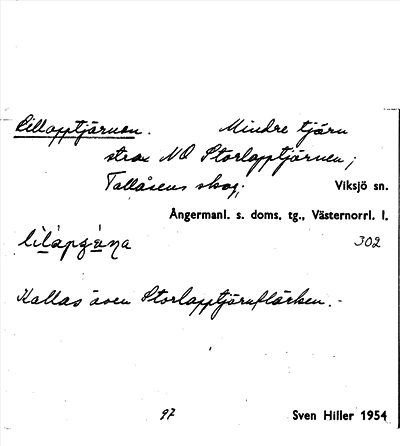 Lillapptjärnen. Mindre tjärn
strax NO Storlapptjärnen;
Tallåsens skog; Viksjö sn.
Ångermanl. s. doms. tg., Västernorrl. l.
302
Kallas även Storlapptjärnflärken.
97 Sven Hiller 1954